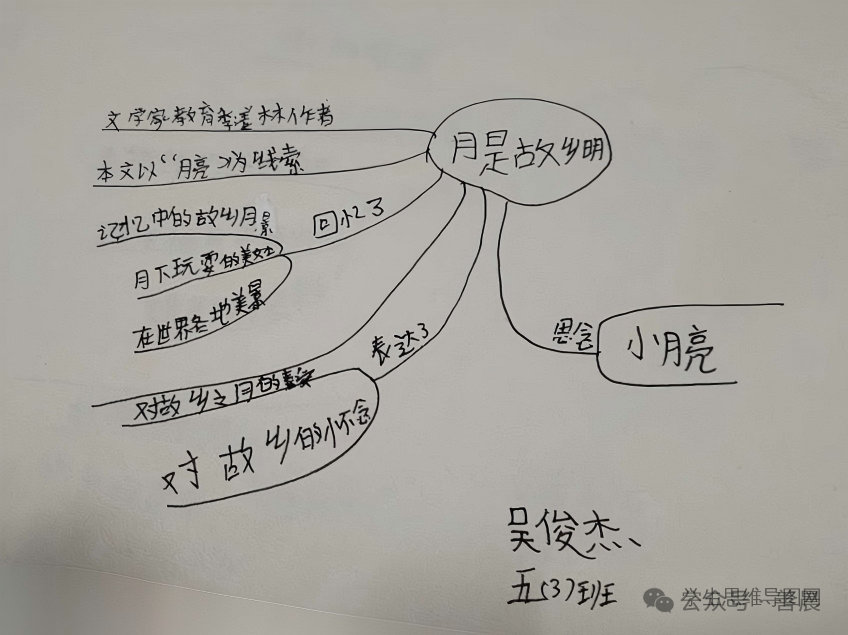 月是故乡明
文学家教育季羡林作者
本文以“月亮”为线索
回忆了
记忆中的故乡月景
月下玩耍的美好
在世界各地美景
表达了
对故乡之月的喜爱
对故乡的怀念
思念
小月亮
吴俊杰
五(3)班
公众号 善晨
学生思维导图网